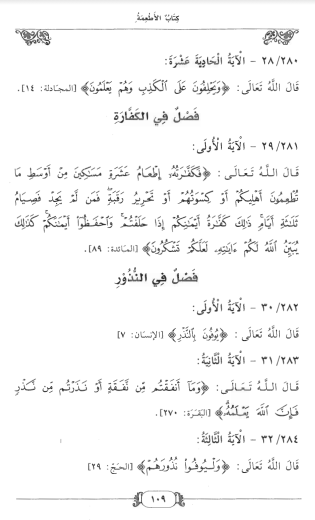 كِتَابُ الأَطْعِمَةِ
٢٨/٢٨٠ - الْآيَةُ الْحَادِيَةَ عَشْرَةَ:
قَالَ اللَّهُ تَعَالَى: ﴿وَيَحْلِفُونَ عَلَى ٱلْكَذِبِ وَهُمْ يَعْلَمُونَ﴾ [المجَادلة: ١٤].
فَصْلٌ فِي الكَفَّارَةِ
٢٩/٢٨١ - الْآيَةُ الْأُولَى:
قَالَ اللَّهُ تَعَالَى: ﴿فَكَفَّٰرَتُهُۥٓ إِطْعَامُ عَشَرَةِ مَسَٰكِينَ مِنْ أَوْسَطِ مَا
تُطْعِمُونَ أَهْلِيكُمْ أَوْ كِسْوَتُهُمْ أَوْ تَحْرِيرُ رَقَبَةٍۖ فَمَن لَّمْ يَجِدْ فَصِيَامُ
ثَلَٰثَةِ أَيَّامٍۚ ذَٰلِكَ كَفَّٰرَةُ أَيْمَٰنِكُمْ إِذَا حَلَفْتُمْۚ وَٱحْفَظُوٓاْ أَيْمَٰنَكُمْۚ كَذَٰلِكَ
يُبَيِّنُ ٱللَّهُ لَكُمْ ءَايَٰتِهِۦ لَعَلَّكُمْ تَشْكُرُونَ﴾ [المَائدة: ٨٩].
فَصْلٌ فِي النُّذُوْرِ
٣٠/٢٨٢ - الْآيَةُ الْأُولَى:
قَالَ اللَّهُ تَعَالَى: ﴿يُوفُونَ بِٱلنَّذْرِ﴾ [الإنسَان: ٧]
٣١/٢٨٣ - الْآيَةُ الثَّانِيَةُ:
قَالَ اللَّهُ تَعَالَى: ﴿وَمَآ أَنفَقْتُم مِّن نَّفَقَةٍ أَوْ نَذَرْتُم مِّن نَّذْرٍ
فَإِنَّ ٱللَّهَ يَعْلَمُهُۥ﴾ [البَقَرَة: ٢٧٠].
٣٢/٢٨٤ - الْآيَةُ الثَّالِثَةُ:
قَالَ اللَّهُ تَعَالَى: ﴿وَلْيُوفُواْ نُذُورَهُمْ﴾ [الحَجّ: ٢٩]
١٠٩